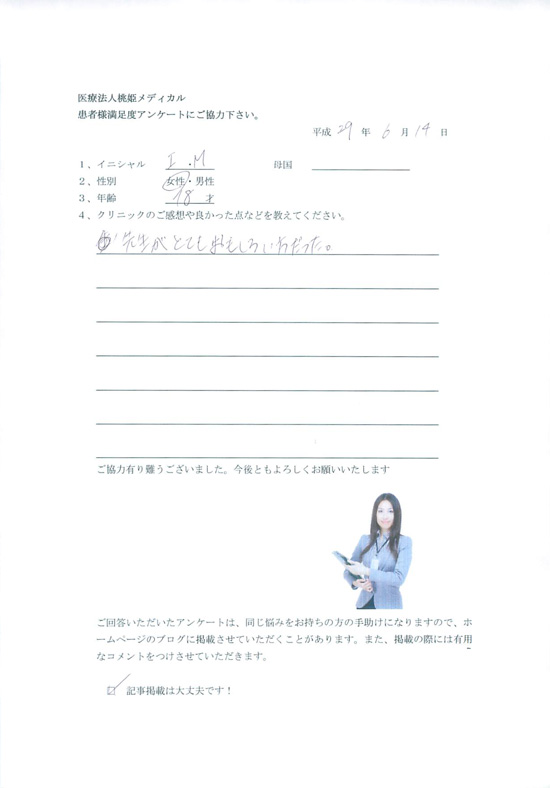 医療法人桃姫メディカル
患者様満足度アンケートにご協力下さい。
平成 29 年 6 月 14 日
1、イニシャル I.M 母国
2、性別 女性・男性
3、年齢 18 才
4、クリニックのご感想や良かった点などを教えてください。
先生がとてもおもしろい方だった。
ご協力有り難うございました。今後ともよろしくお願いいたします
ご回答いただいたアンケートは、同じ悩みをお持ちの方の手助けになりますので、ホ
ームページのブログに掲載させていただくことがあります。また、掲載の際には有用
なコメントをつけさせていただきます。
☑ 記事掲載は大丈夫です！